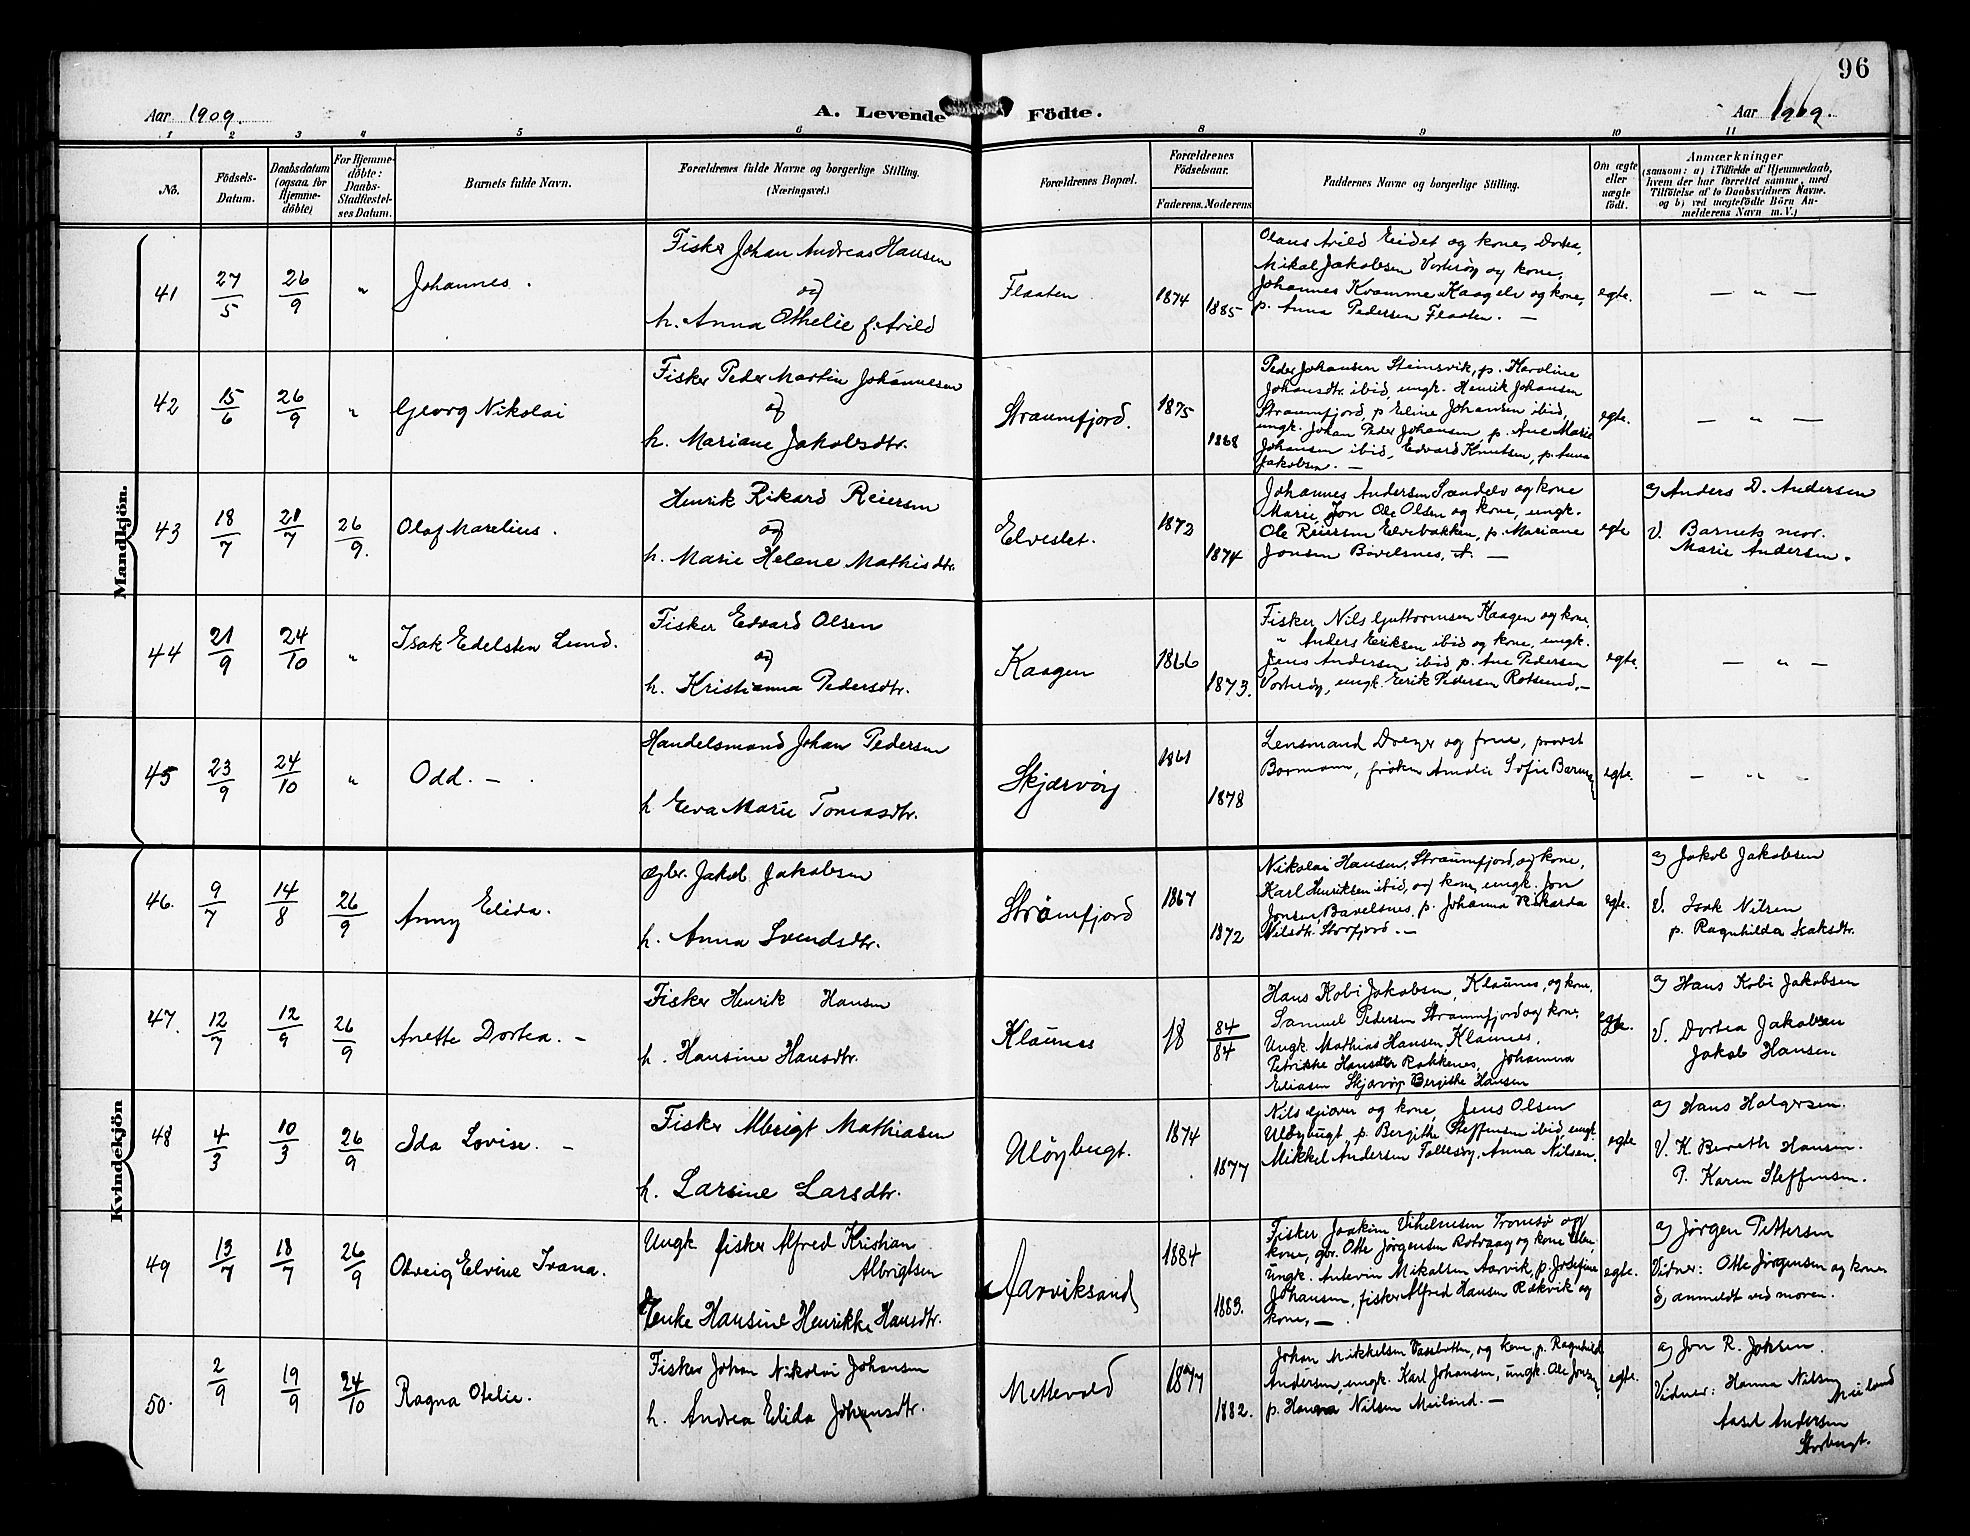 96
Aar 1909.
A. Levende Födte.
Aar 1909.
1 2 3 4 5 6 8 9 10 11
No.
Födsels-Datum.
Daabsdatum (ogsaa for Hjemme-döbte)
For Hjemme-döbte: Daabs-Stadfæstel-ses Datum.
Barnets fulde Navn.
Forældrenes fulde Navne og borgerlige Stilling.
(Næringsvei.)
Forældrenes Bopæl.
Forældrenes Födselsaar.
Faderens. Moderens
Faddernes Navne og borgerlige Stilling.
Om ægte eller uægte födt.
Anmærkninger
(saasom: a) i Tilfælde af Hjemmedaab,
hvem der har forrettet samme, med
Tilföielse af to Daabsvidners Navne.
og b) ved uægtefödte Börn An-
melderens Navn m. V.)
Mandkjön.
41 27/5 26/9 " Johannes.
Fisker Johan Andreas Hansen
og
h. Anna Othelie f. Arild
Flaaten 1874 1885
Olaus Arild Eidet og kone, Dortea,
Mikal Jakobsen Vorterøy og kone,
Johannes Kvamme Kaagelv og kone,
p. Anna Pedersen Flaaten. —
egte. — " —
42 15/6 26/9 " Georg Nikolai
Fisker Peder Martin Johannesen
og
h. Mariane Jakobsdtr.
Straumfjord. 1875 1868
Peder Johansen Steinsvik, p. Karoline
Johansdtr. ibid, ungk. Henrik Johansen
Straumfjord, p Eline Johansen ibid,
ungk. Johan Peder Johansen, p. Ane Marie
Johansen ibid, Edvard Knutsen, p. Anna
Jakobsen. —
egte. — " —
43 18/7 21/7 26/9. Olaf Marelius.
Henrik Rikard Reiersen
og
h. Marie Helene Mathisdtr.
Elveslet. 1873 1874
Johannes Andersen Sandelv og kone
Marie, Jon Ole Olsen og kone, ungk.
Ole Reiersen Elvebakken, p. Mariane
Jonsen Bavelsnes, —
egte
a) Anders D. Andersen
V. Barnets mor.
Marie Andersen.
44 21/9 24/10 " Isak Edelsten Lund.
Fisker Edvard Olsen
og
h. Kristianna Pedersdtr.
Kaagen 1866 1873.
Fisker Nils Guttormsen Kaagen og kone,
" Anders Eriksen ibid og kone, ungk.
Jens Andersen ibid p. Ane Pedersen
Vorterøy, ungk. Eerik Pedersen Rotsund, —
egte. — " —
45 23/9 24/10 " Odd. —
Handelsmand Johan Pedersen
h Eva Marie Tomasdtr.
Skjærvöy 1861 1878
Lensmand Dreyer og frue, provst
Bormann, frøken Amalie Sofie
egte. — " —
Kvindekjön
46. 9/7 14/8 26/9 Anny Elida.
Gbr. Jakob Jakobsen
h. Anna Svendsdtr.
Strömfjord 1867 1872
Nikolai Hansen, Straumfjord, og kone,
Karl Henriksen ibid, og kone, ungk. Jon
Jonsen, Bavelsnes, p. Johanna Rikarda
Nilsdtr. Storfjord. —
egte.
a) Jakob Jakobsen
V. Isak Nilsen
p. Ragnhilda Isaksdtr.
47. 12/7 12/9 26/9 Anette Dortea. —
Fisker Henrik Hansen
h. Hansine Hansdtr.
Klaunes 18 84/84
Hans Kobi Jakobsen, Klaunes, og kone,
Samuel Pedersen Straumfjord og kone,
Ungk Mathias Hansen Klaunes,
Petrikke Hansdtr Rakkenes, Johanna
Eliasen Skjærvöy Bergithe Hansen
egte.
a) Hans Kobi Jakobsen
V. Dortea Jakobsen
Jakob Hansen
48 4/3 10/3 26/9 Ida Lovise. —
Fisker Albrigt Mathiasen
h. Larsine Larsdtr.
Ulöybugt. 1874 1877
Nils Giæver og kone, Jens Olsen
Ulöybugt, p. Bergithe Steffensen ibid, ungk.
Mikkel Andersen Follesöy, Anna Nilsen.
egte
a) Hans Holgersen.
V. K. Bereth Hansen.
P. Karen Steffensen.
49 13/7 18/7 26/9 Olveig Elvine Ivana.
Ungk fisker Alfred Kristian
Albrigtsen
Enke Hansine Henrikke Hansdtr.
Aarviksand 1884 1883.
Fisker Joakim Vilhelmsen Tromsö og
kone, gbr. Otte Jørgensen Rotvaag og kone
ungk. Antevin Mikalsen Aarvik, p. Josefine
Johansen, fisker Alfred Hansen Rækvik og
kone, —
egte.
a) Jørgen Pettersen
Vidner: Otte Jørgensen og kone
b) anmeldt ved moren.
50. 2/9 19/9 24/10 Ragna Otelie.
Fisker Johan Nikolai Johansen
h. Andrea Elida Johansdtr.
Mettevold 1877 1882.
Johan Mikkelsen Vassbotten, og kone, p. Ragnhild
Andersen, ungk. Karl Johansen, ungk. Ole Jonsen,
p. Hanna Nilsen Meiland. —
egte.
a) Jon R. Johsen.
Vidner: Hanna Nilsen Meiland
Aasel Andersen
Storbugt.